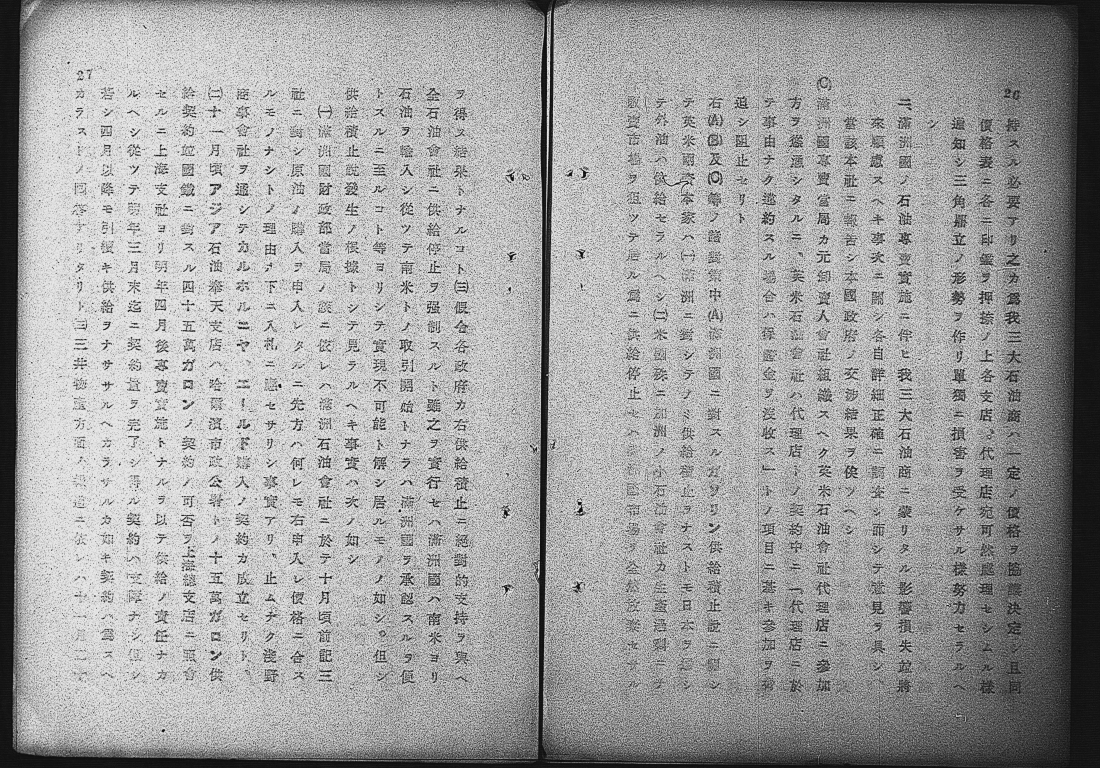 26
持スル必要アリ之カ爲我三大石油商ハ一定ノ價格ヲ協議決定シ且同
價格表ニ各ニ印鑑ヲ押捺ノ上各支店、代理店宛可然處理セシムル樣
通知シ三角鼎立ノ形勢ヲ作リ單獨ニ損害ヲ受ケサル樣努力セラルヘ
シ
二、滿洲國ノ石油專賣實施ニ伴ヒ我三大石油商ニ蒙リタル影響損失並將
來顧慮スヘキ事項ニ關シ各自詳細正確ニ調査シ而シテ意見ヲ具シ、
當該本社ニ報告シ本國政府ノ交渉結果ヲ俟ツヘシ
(C)滿洲國專賣當局カ元卸賣人會社組織スヘク英米石油會社代理店ニ參加
方ヲ慫慂シタルニ、英米石油會社ハ代理店トノ契約中ニ「代理店ニ於
テ事由ナク違約スル場合ハ保證金ヲ沒收ス」トノ項目ニ基キ參加ヲ
迫シ阻止セリト
右(A)(B)及(C)等ノ諸對策中(A)滿洲國ニ對スルガソリン供給積止說ニ關シ
テ英米兩國本家ハ(一)滿洲ニ對シテノミ供給積止ヲナストモ日本ヲ經シ
テ外油ハ供給セラルヘシ(二)米國殊ニ加洲ノ小石油會社カ生產過剩ニテ
販賣市場ヲ狙ツテ居ル爲ニ供給停止セハ
27
ヲ得ヌ結果トナルコト(三)假令各政府カ右供給積止ニ絕對的支持ヲ與ヘ
全石油會社ニ供給停止ヲ强制スルト雖之ヲ實行セハ滿洲國ハ南米ヨリ
石油ヲ輸入シ從ツテ南米トノ取引開始トナラハ滿洲國ヲ承認スルヲ便
トスルニ至ルコト等ヨリシテ實現不可能ト解シ居ルモノノ如シ。但シ
供給積止說發生ノ根據トシテ見ラルヘキ事實ハ次ノ如シ
(一)滿洲國財政部當局ノ談ニ依レハ滿洲石油會社ニ於テ十月頃前記三
社ニ對シ原油ノ購入ヲ申入レタルニ先方ハ何レモ右申入レ價格ニ合ス
ルモノナシトノ理由ノ下ニ入札ニ應セサリシ事實アリ、止ムナク淺野
商事會社ヲ通シテカルホルニヤ、エールド購入ノ契約カ成立セリト。
(二)十一月頃アジア石油奉天支店ハ哈爾濱市政公署トノ十五萬ガロン供
給契約並國鐵ニ對スル四十五萬ガロンノ契約ノ可否ヲ上海總支店ニ照會
セルニ上海支社ヨリ明年四月後專賣實施トナルヲ以テ供給ノ責任ナカ
ルヘシ從ツテ明年三月末迄ニ契約量ヲ完了シ得ル契約ハ支障ナシ但シ
若シ四月以降モ引續キ供給ヲナササルヘカラサルカ如キ契約ハ爲スヘ
カラストノ回答ナリタリト(三)三井物產方面ノ報道ニ依レハ十一月二十